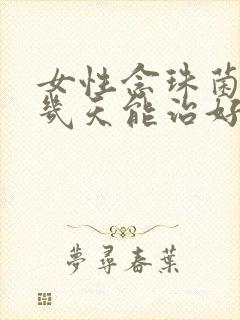 女性念珠菌
幾天能治好
夢尋春葉